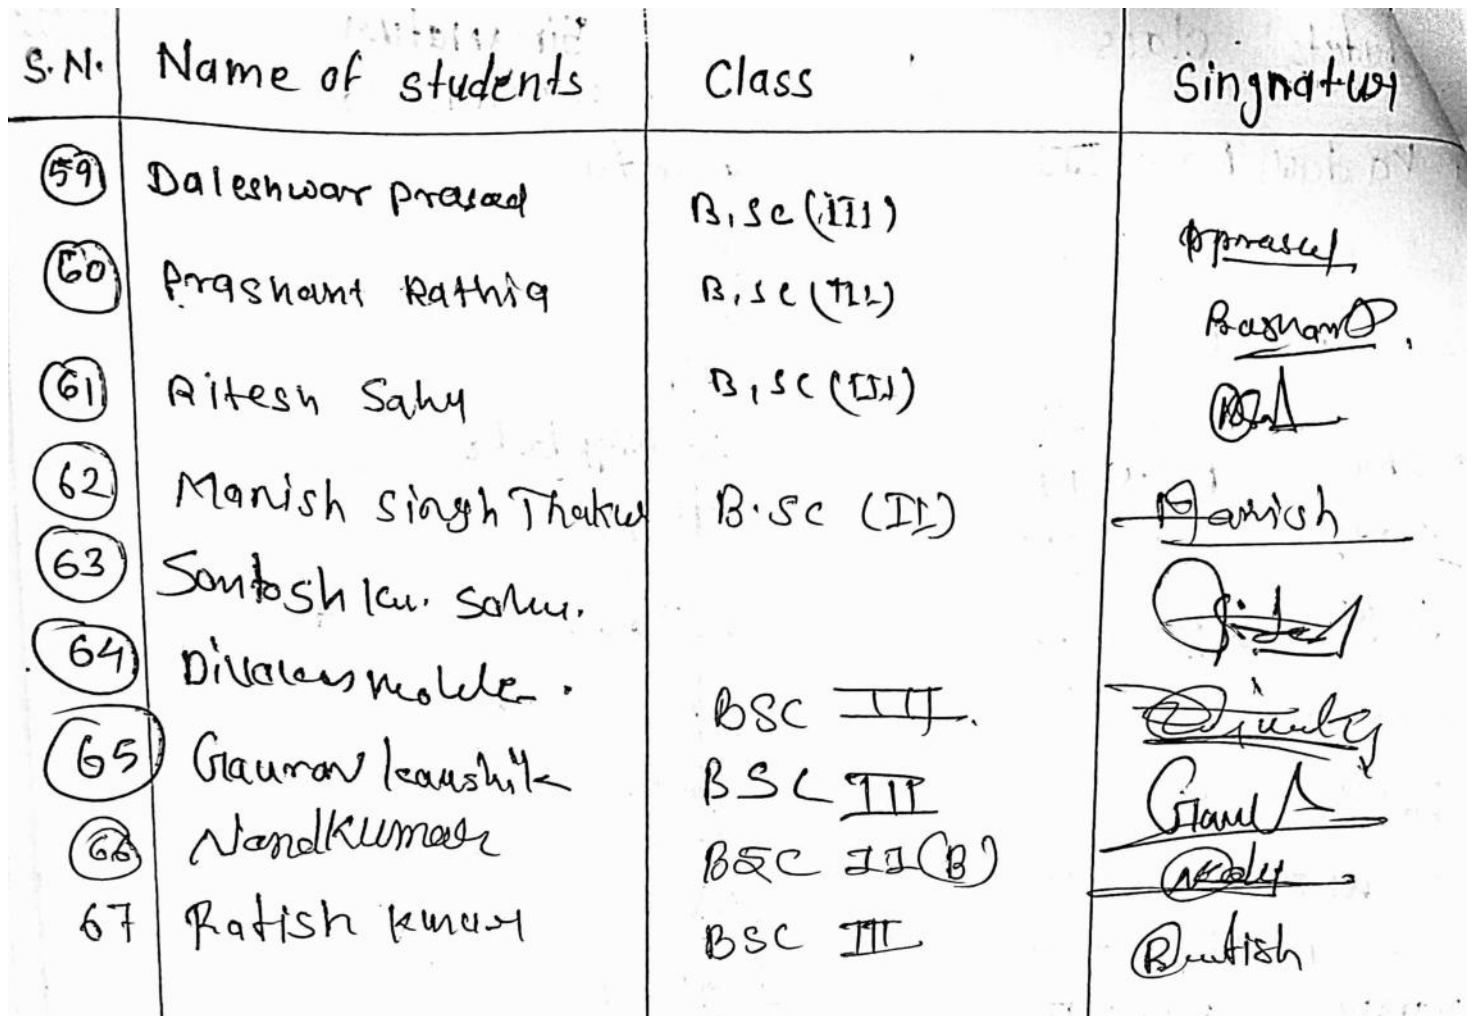 S.N. Name of students Class Singnatur
59 Daleshwar prasad B.sc (III) pprasad
60 Prashant Rathia B.sc (III) Prashant
61 Ritesh Sahu B.sc (III)
62 Manish singh Thakur B.sc (II) Manish
63 Santosh ku. sahu.
64 BSC III
65 Gaurav kaushik BSC III Gaurav
66 Nandkumar BSC II (B)
67 Ratish kumar BSC III Ratish